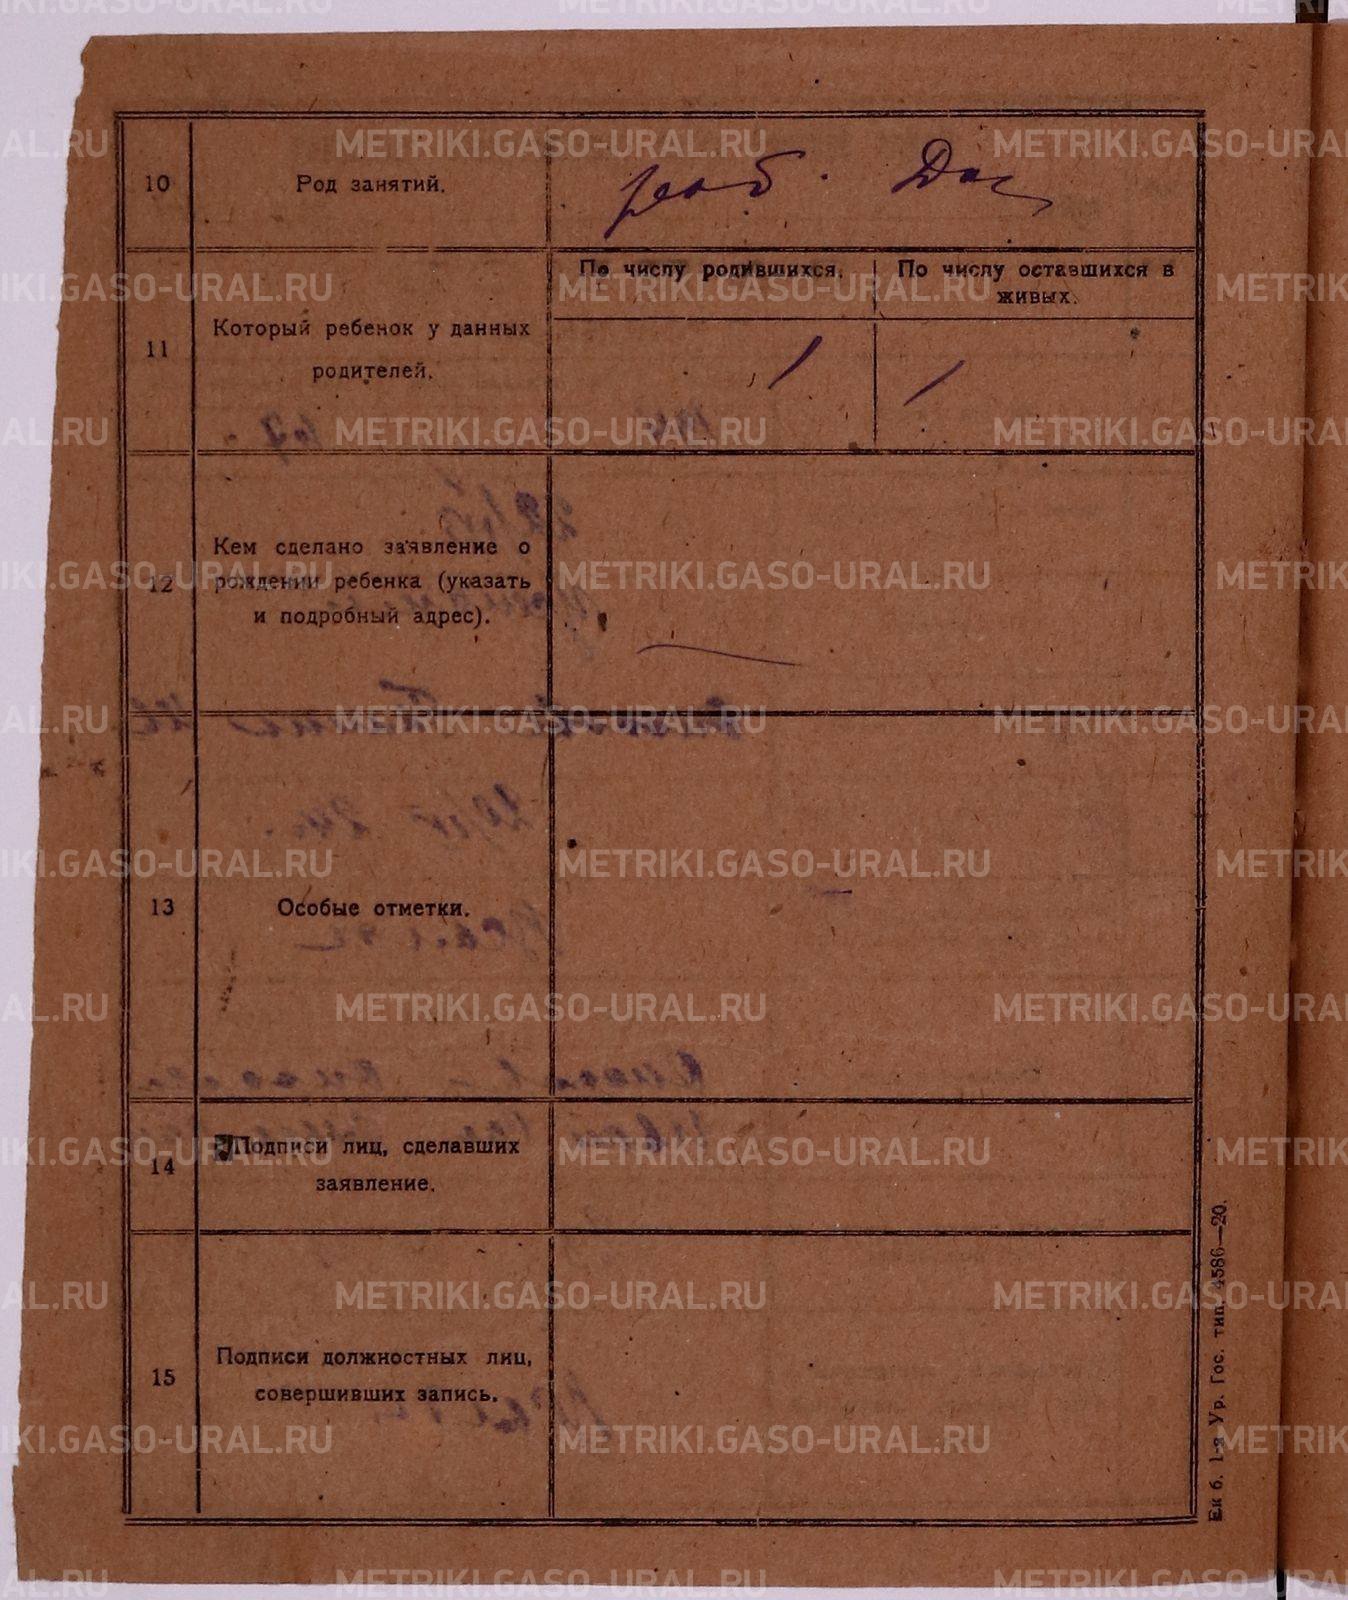 10
Род занятий.
раб.
11
Который ребенок у данных
родителей.
По числу родившихся.
По числу оставшихся в
живых.
1
1
12
Кем сделано заявление о
рождении ребенка (указать
и подробный адрес).
13
Особые отметки.
14
Подписи лиц, сделавших
заявление.
15
Подписи должностных лиц,
совершивших запись.
Ек б. 1-я Ур. Гос. тип. 4586—20.
METRIKI.GASO-URAL.RU